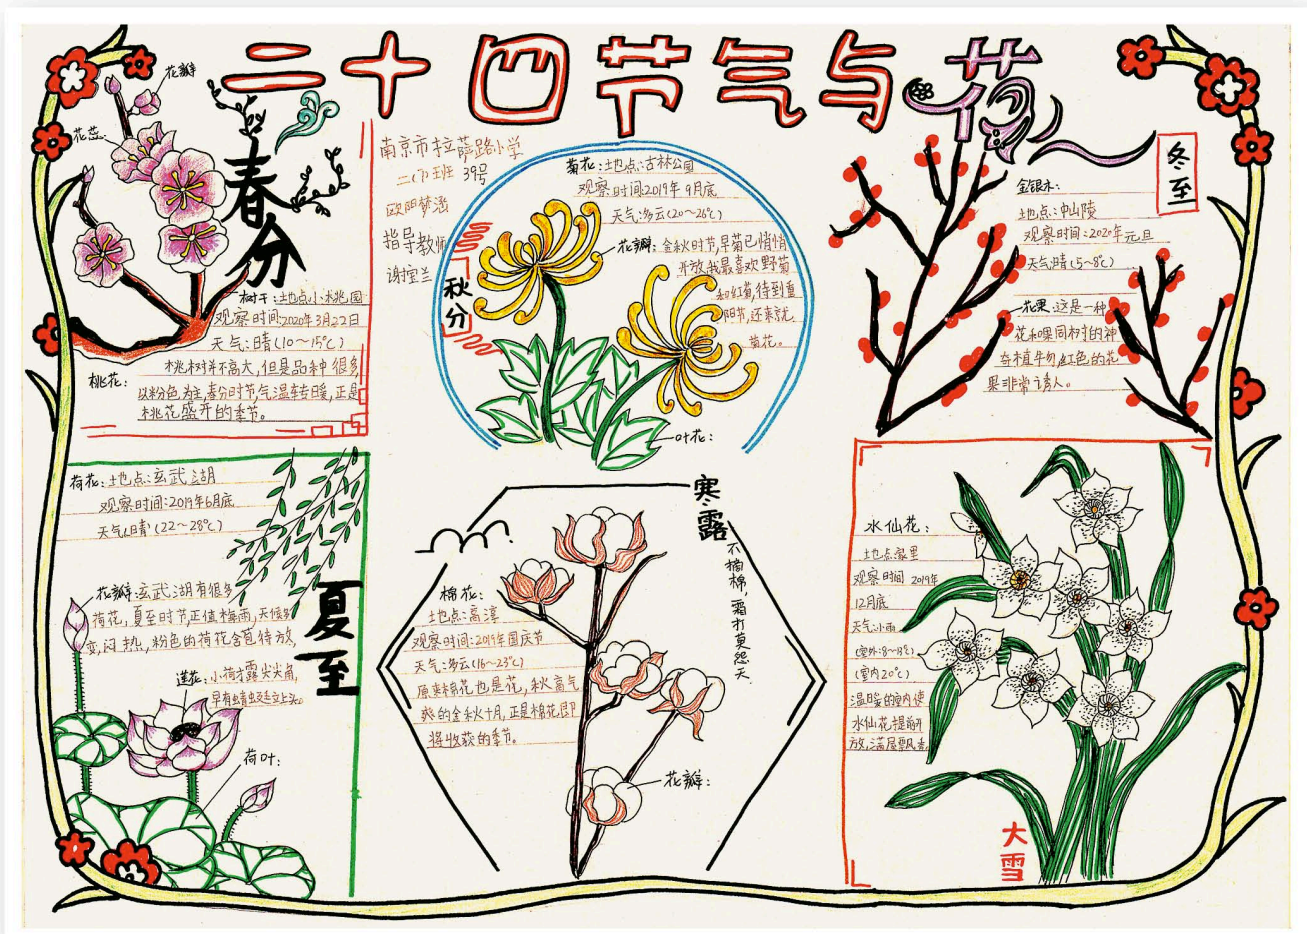 二十四节气与花
南京市拉萨路小学
二(7)班 39号
欧阳梦涵
指导教师
谢宝兰
春分
花瓣
花蕊
树干:地点:小桃园
观察时间:2020年3月22日
天气:晴(10～15℃)
桃花:
桃树并不高大,但是品种很多,
以粉色为主,春分时节,气温转暖,正是
桃花盛开的季节。
秋分
菊花:地点:古林公园
观察时间:2019年9月底
天气:多云(20～26℃)
花瓣:金秋时节,早菊已悄悄
开放,我最喜欢野菊
和红菊,待到重
阳节,还来就
菊花。
叶花:
冬至
金银木:
地点:中山陵
观察时间:2020年元旦
天气:晴(5～8℃)
花果:这是一种
花和果同树的神
奇植物,红色的花
果非常诱人。
夏至
荷花:地点:玄武湖
观察时间:2019年6月底
天气:晴(22～28℃)
花瓣:玄武湖有很多
荷花,夏至时节正值梅雨,天候多
变,闷热,粉色的荷花含苞待放,
莲花:小荷才露尖尖角,
早有蜻蜓立上头。
荷叶:
寒露
不摘棉,霜打莫怨天.
棉花:
地点:高淳
观察时间:2019年国庆节
天气:多云(16～23℃)
原来棉花也是花,秋高气
爽的金秋十月,正是棉花即
将收获的季节。
花瓣:
大雪
水仙花:
地点:家里
观察时间 2019年
12月底
天气:小雨
(室外:8～11℃)
(室内20℃)
温暖的室内使
水仙花提前开
放,满屋飘香